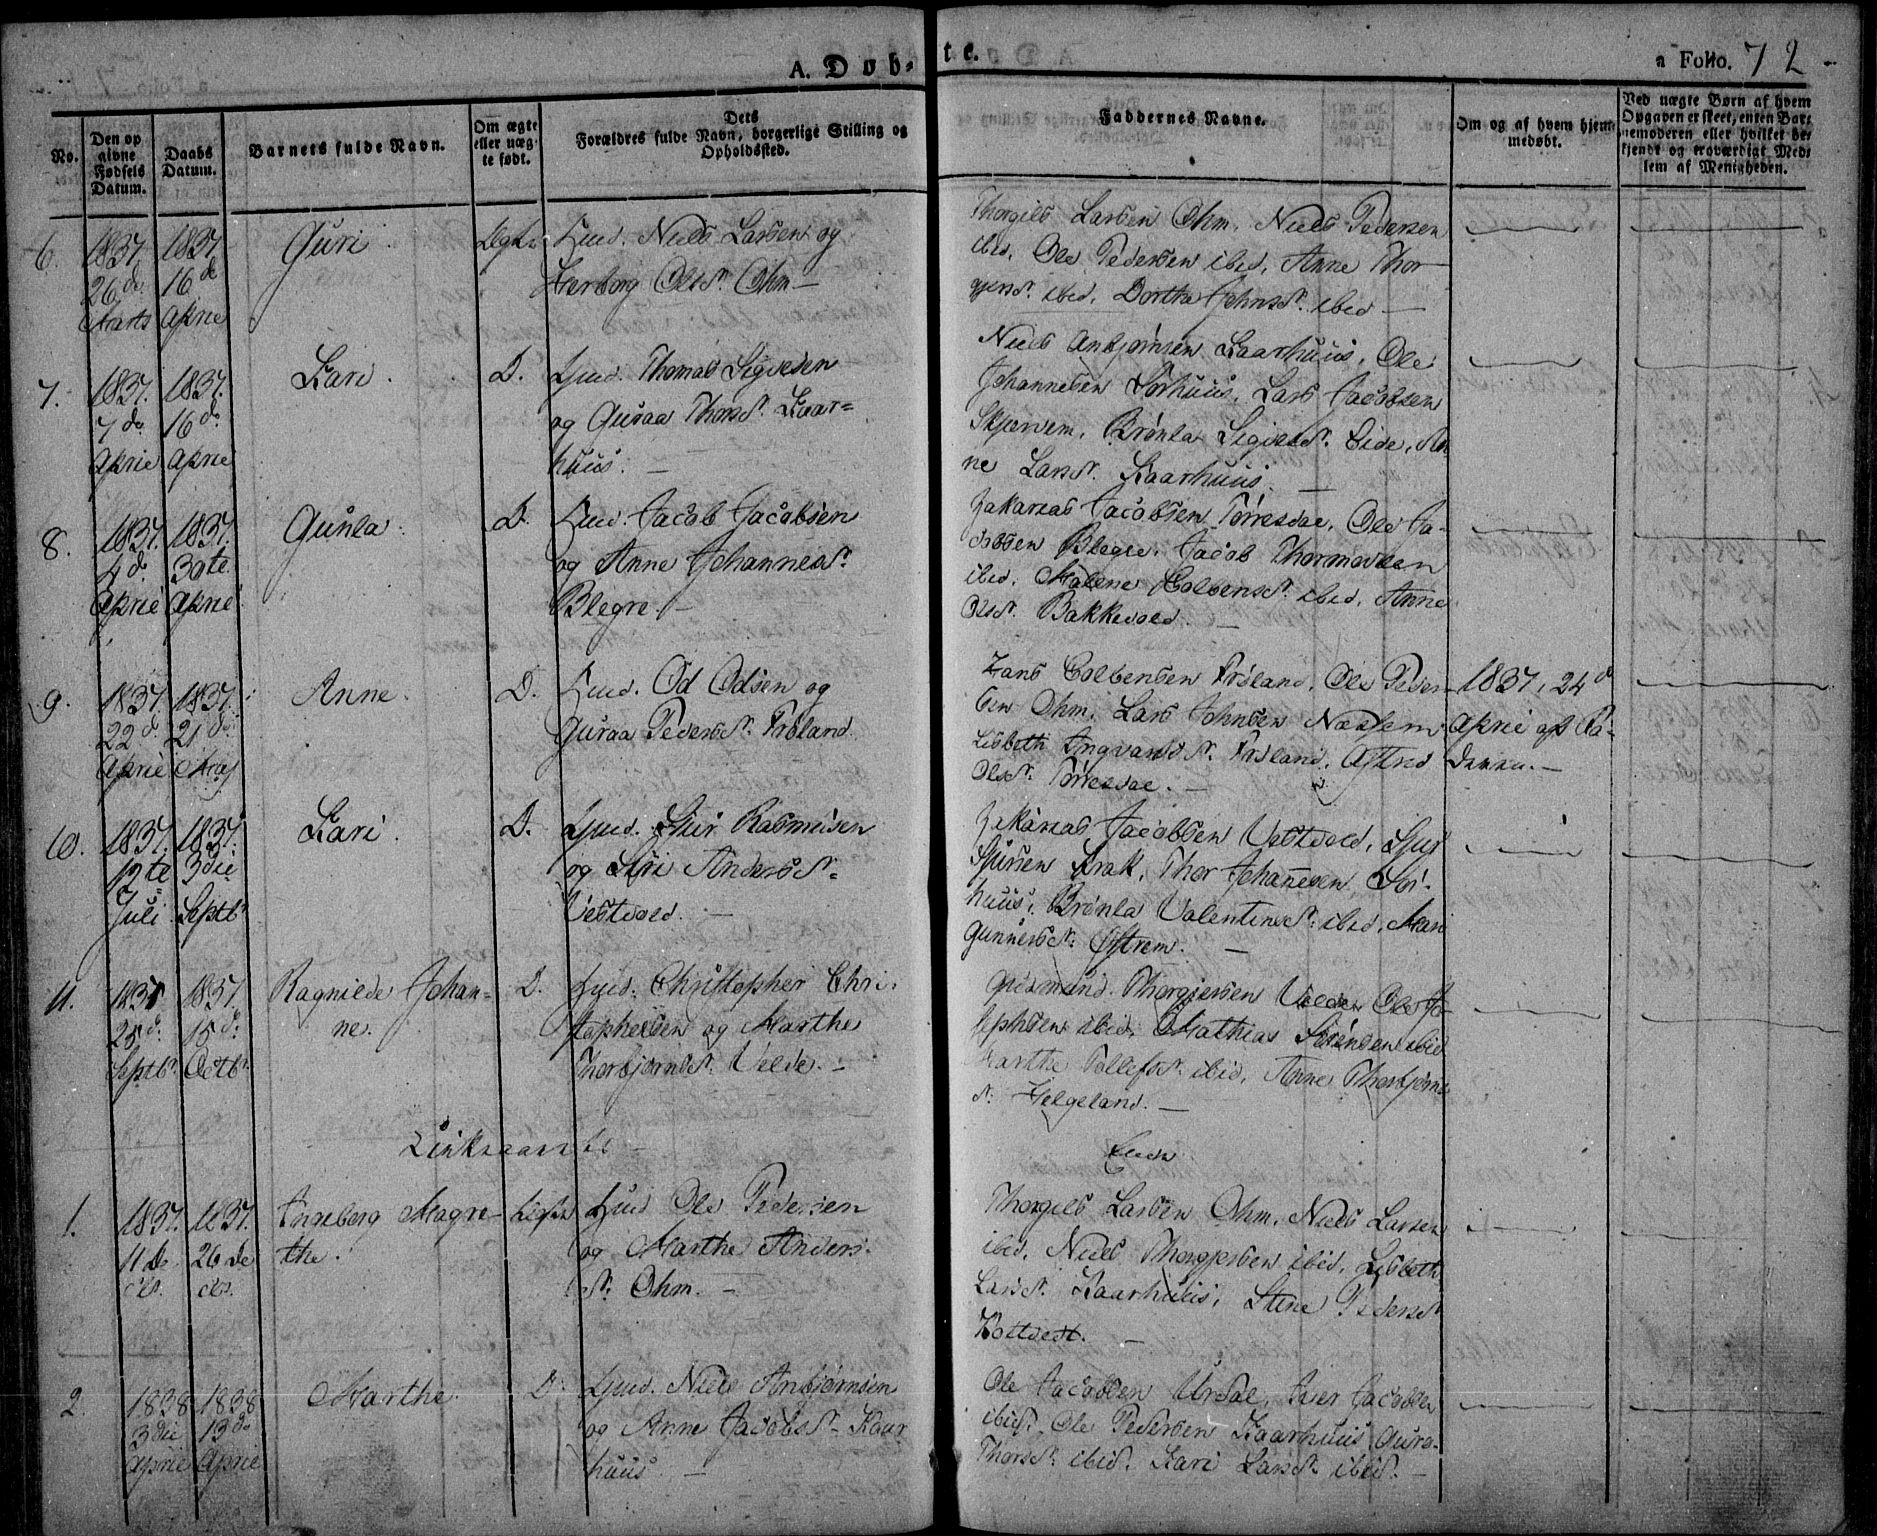 A. Døb-
te.
a Folio. 72
No.
Den op
givne
Fødsels
Datum.
Daabs
Datum.
Barnets fulde Navn.
Om ægte
eller uæg-
te født.
Dets
Forældres fulde Navn, borgerlige Stilling og
Opholdssted.
Faddernes Navne.
Om og af hvem hjem-
medøbt.
Ved uægte Børn af hvem
Opgaven er skeet, enten Bar-
nemoderen eller hvilket be-
kjendt og troværdigt Med-
lem af Menigheden.
6.
1837.
26 de
Marts
1837
16 de
April
Guri
Ægte
Huud. Niels Larsen og
Herborg Olsd. Ohm -
Thorgils Larsen Ohm, Niels Pedersen
ibid, Ole Pedersen ibid, Anne Thor-
gjersd. ibid, Dorthe Johnsd. ibid -
7.
1837.
7 de
April
1837.
16 d.
April
Kari
D.
Huud. Thomas Sigvesen
og Guraa Thorsd. Kaar-
huus. -
Niels Anbjørnsen Kaarhuus, Ole
Johannesen Sørhuus, Lars Jacobsen
Skjervem, Brønla Sigvesd. Eide, An-
ne Larsd. Kaarhuus. -
8.
1837.
4 d.
April
1837.
30te
April
Gunla
D.
Huud. Jacob Jacobsen
og Anne Johannesd.
Blegre. -
Zakarias Jacobsen Tørresdal, Ole Ja-
cobsen Blegre, Jacob Thormodsen
ibid, Malene Colbensd. ibid, Anne
Olsd. Bakkevold. -
9.
1837.
22 d.
April
1837.
21 d.
Maj
Anne
D.
Huud. Od Odsen og
Guraa Pedersd. Frøland
Hans Colbensen Frøland, Ole Peder-
sen Ohm, Lars Johnsen Næssem,
Lisbeth Ingvarsd. Frøland, Astrid
Olsd. Tørresdal. -
1837, 24 d
April af Fa-
deren. -
10.
1837.
12te
Juli
1837.
3die
Septbr
Kari
D.
Huud. Siur Rasmusen
og Siri Andersd.
Vestvold. -
Zakarias Jacobsen Vestvold, Sjur
Sjursen Krak, Thor Johannesen Sør-
huus, Brønla Valentinsd. ibid, Mari
Gunnersd. Østrem. -
11.
1837
25 d.
Septbr.
1837.
15 d.
Octbr.
Ragnilde Johan-
ne.
D.
Huud. Christopher Chri-
stophersen og Marthe
Thorbjørnsd. Velde. -
Gudmund Thorgjersen Velde, Ole Jo-
sephsen ibid, Mathias Sørensen ibid
Marthe Tollefsd. ibid, Anne Thorbjørns
d. Helgeland. -
Kirkeaarets -
Ende
1.
1837.
11 de
dec.
1837.
26 de
dec.
Ingeborg Magre-
the.
Ægte
Huud Ole Pedersen
og Marthe Anders-
d. Ohm. -
Thorgils Larsen Ohm, Niels Larsen
ibid, Niels Thorgjersen ibid, Lisbeth
Larsd. Kaarhuus, Stine Pedersd.
2.
1838
3die
April
1838
13 d
April
Marthe
D.
Huud. Niels Anbjørnsen
og Anne Jacobsd. Kaar-
huus -
Ole Jacobsen Urdal, Iver Jacobsen
ibid, Ole Pedersen Kaarhuus, Gura
Thorsd. ibid, Kari Larsd. ibid. -